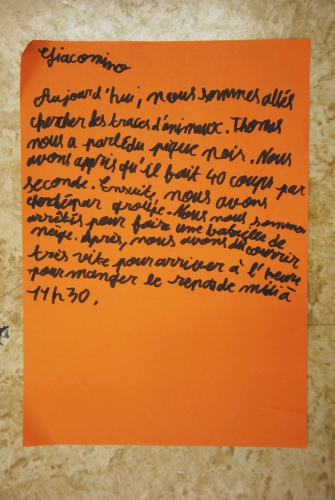 Giacomino
Aujourd'hui, nous sommes allés
chercher les traces d'animaux. Thomas
nous a parlé du pique noir. Nous
avons appris qu'il fait 40 coups par
seconde. Ensuite nous avons
par groupe. Nous nous sommes
arrêtés pour faire une bataille de
neige. Après, nous avons dû courrir
très vite pour arriver à l'heure
pour manger le repas de midi à
11h30.